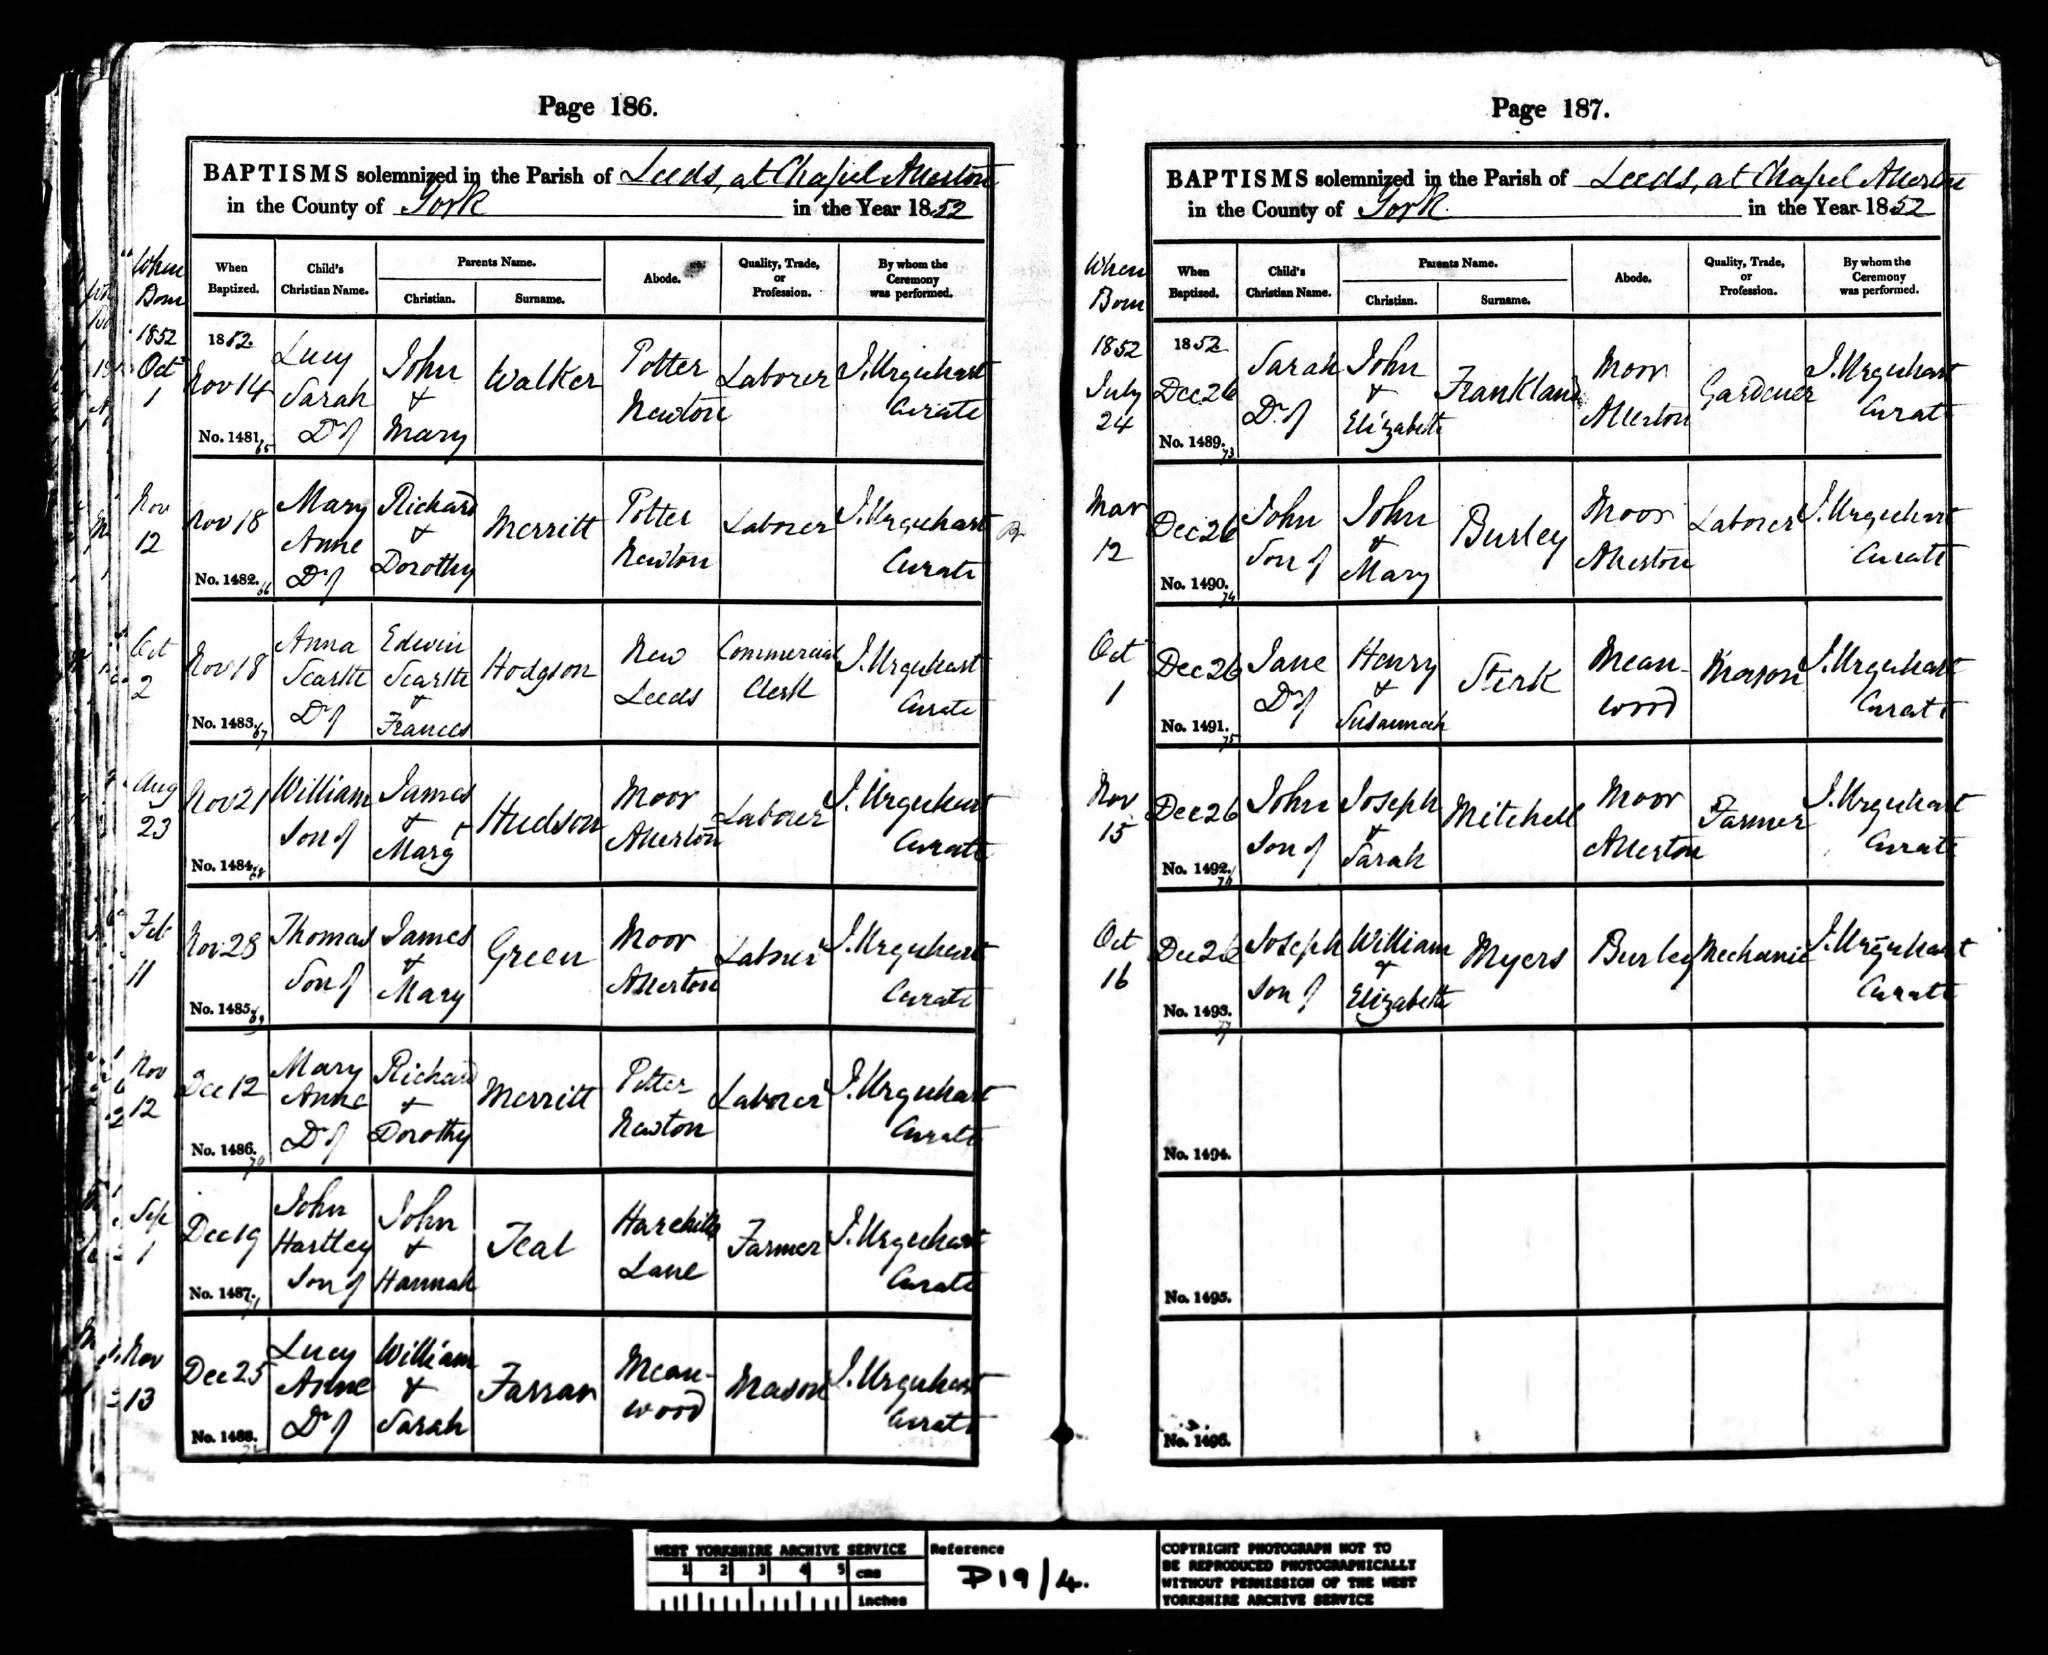 Page 186.
BAPTISMS solemnized in the Parish of Leeds, at Chapel Allerton
in the County of York in the Year 1852
When Born
When Baptized.
Child's Christian Name.
Parents Name.
Christian.
Surname.
Abode.
Quality, Trade, or Profession.
By whom the Ceremony was performed.
1852 Oct 1 1852. Nov 14 No. 1481. 65 Lucy Sarah Dr of John & Mary Walker Potter Newton Laborer J. Urquhart Curate
Nov 12 Nov 18 No. 1482. 66 Mary Anne Dr of Richard & Dorothy Merritt Potter Newton Laborer J. Urquhart Curate
Oct 2 Nov 18 No. 1483. 67 Anna Scarth Dr of Edwin Scarth & Frances Hodgson New Leeds Commercial Clerk J. Urquhart Curate
Aug 23 Nov 21 No. 1484. 68 William Son of James & Margt Hudson Moor Allerton Laborer J. Urquhart Curate
Feb 11 Nov 28 No. 1485. 69 Thomas Son of James & Mary Green Moor Allerton Laborer J. Urquhart Curate
Nov 12 Dec 12 No. 1486. 70 Mary Anne Dr of Richard & Dorothy Merritt Potter Newton Laborer J. Urquhart Curate
Sep 1 Dec 19 No. 1487. 71 John Hartley Son of John & Hannah Teal Harehills Lane Farmer J. Urquhart Curate
Nov 13 Dec 25 No. 1488. 72 Lucy Anne Dr of William & Sarah Farrar Mean-wood Mason J. Urquhart Curate
Page 187.
BAPTISMS solemnized in the Parish of Leeds, at Chapel Allerton
in the County of York in the Year 1852
When Born
When Baptized.
Child's Christian Name.
Parents Name.
Christian.
Surname.
Abode.
Quality, Trade, or Profession.
By whom the Ceremony was performed.
1852 July 24 1852 Dec 26 No. 1489. 73 Sarah Dr of John & Elizabeth Frankland Moor Allerton Gardener J. Urquhart Curate
Mar 12 Dec 26 No. 1490. 74 John Son of John & Mary Burley Moor Allerton Laborer J. Urquhart Curate
Oct 1 Dec 26 No. 1491. 75 Jane Dr of Henry & Susannah Stirk Mean-wood Mason J. Urquhart Curate
Nov 15 Dec 26 No. 1492. 76 John Son of Joseph & Sarah Mitchell Moor Allerton Farmer J. Urquhart Curate
Oct 16 Dec 26 No. 1493. 77 Joseph Son of William & Elizabeth Myers Burley Mechanic J. Urquhart Curate
No. 1494.
No. 1495.
No. 1496.
WEST YORKSHIRE ARCHIVE SERVICE
1 2 3 4 5 cms
inches
Reference
P19/4.
COPYRIGHT PHOTOGRAPH NOT TO
BE REPRODUCED PHOTOGRAPHICALLY
WITHOUT PERMISSION OF THE WEST
YORKSHIRE ARCHIVE SERVICE